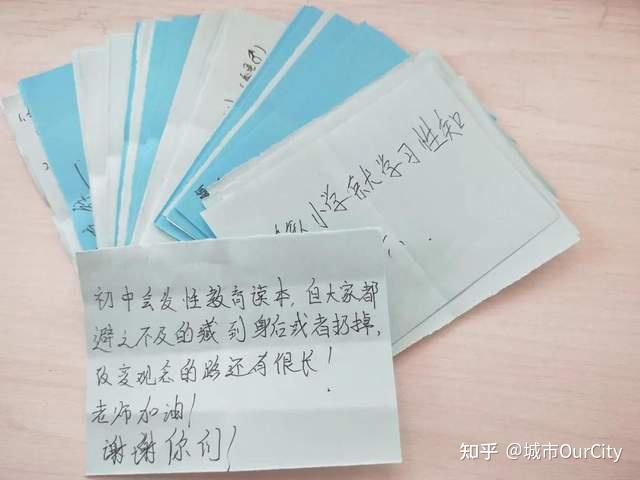 小学就学习性知
初中会发性教育读本，但大家都
避之不及的藏到身后或者扔掉，
改变观念的路还有很长！
老师加油！
谢谢你们！
知乎 @城市OurCity